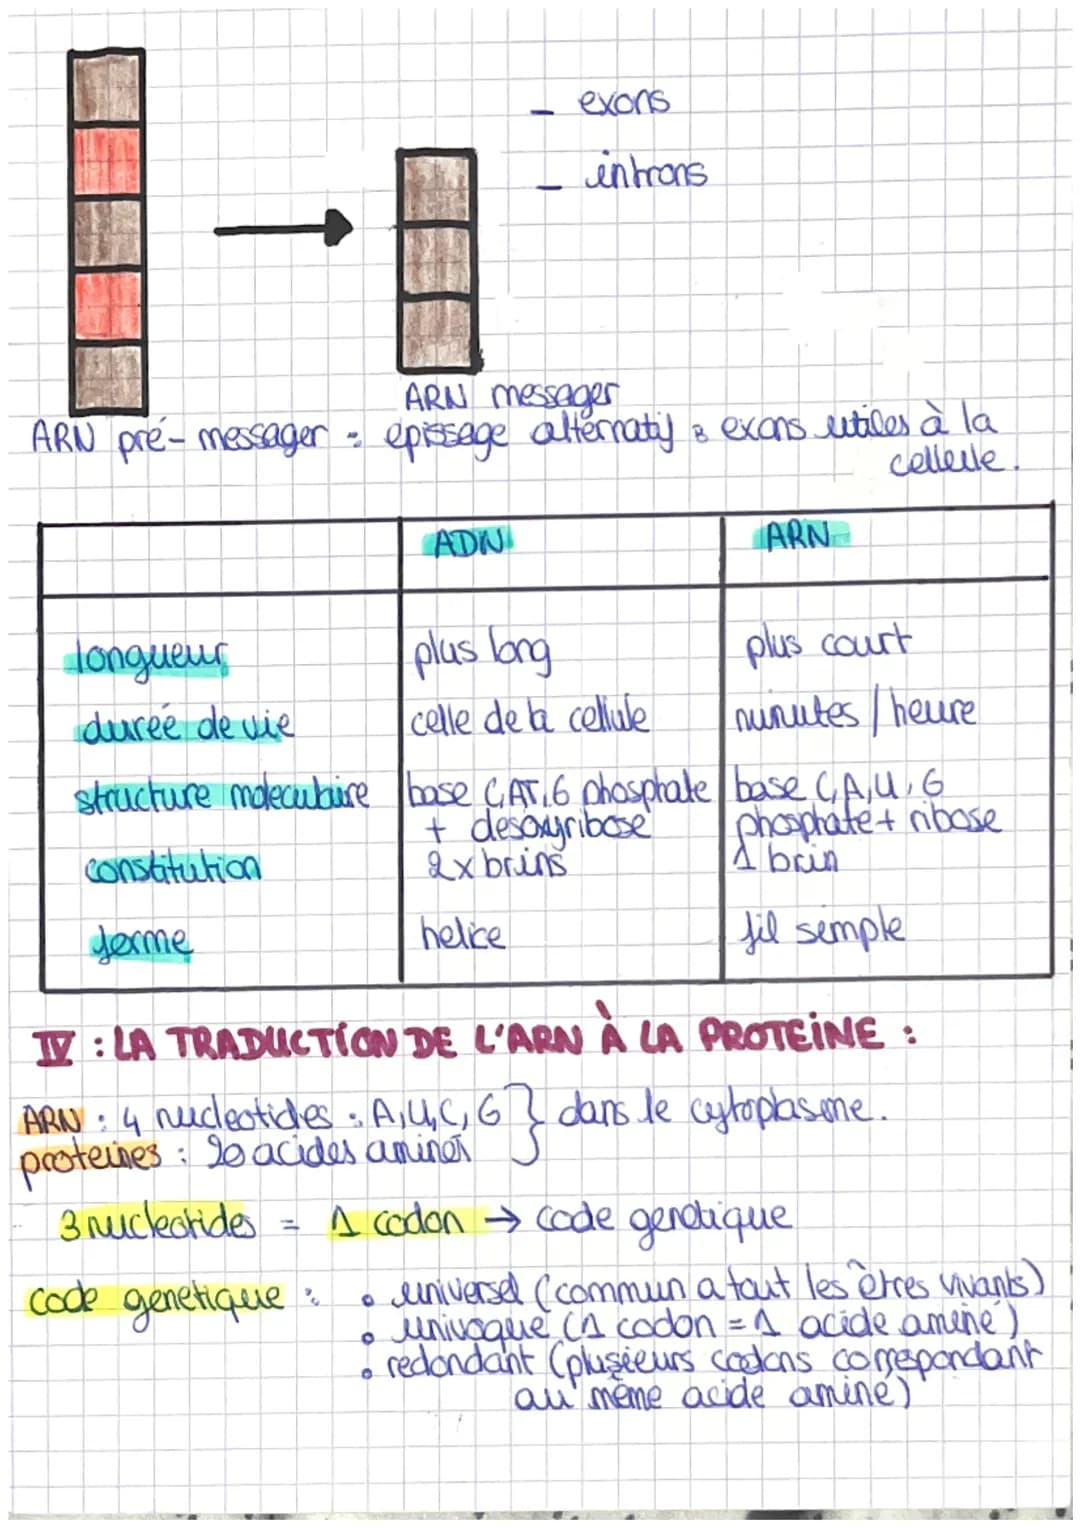 - exons
- introns
ARN messager
ARN pré-messager : épissage alternatif : exons utiles à la
cellule.
ADN ARN
longueur plus long plus court
durée de vie celle de la cellule minutes / heure
structure moleculaire base C,A,T,G phosphate base C,A,U,G
+ desoxyribose phosphate + ribose
constitution 2x brins 1 brin
forme helice fil simple
IV : LA TRADUCTION DE L'ARN À LA PROTEINE :
ARN : 4 nucleotides : A,U,C,G } dans le cytoplasme.
proteines : 20 acides aminés
3 nucleotides = 1 codon → code genetique
code genetique : • universel (commun a tout les êtres vivants)
• univoque (1 codon = 1 acide aminé)
• redondant (plusieurs codons correspondant
au même acide aminé)